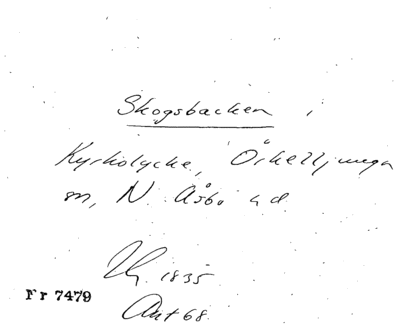 Skogsbacken,
Kyrkolycke, Örkelljunga
sn, N. Åsbo hd.
Hg. 1835
Fr 7479
Ant 68.